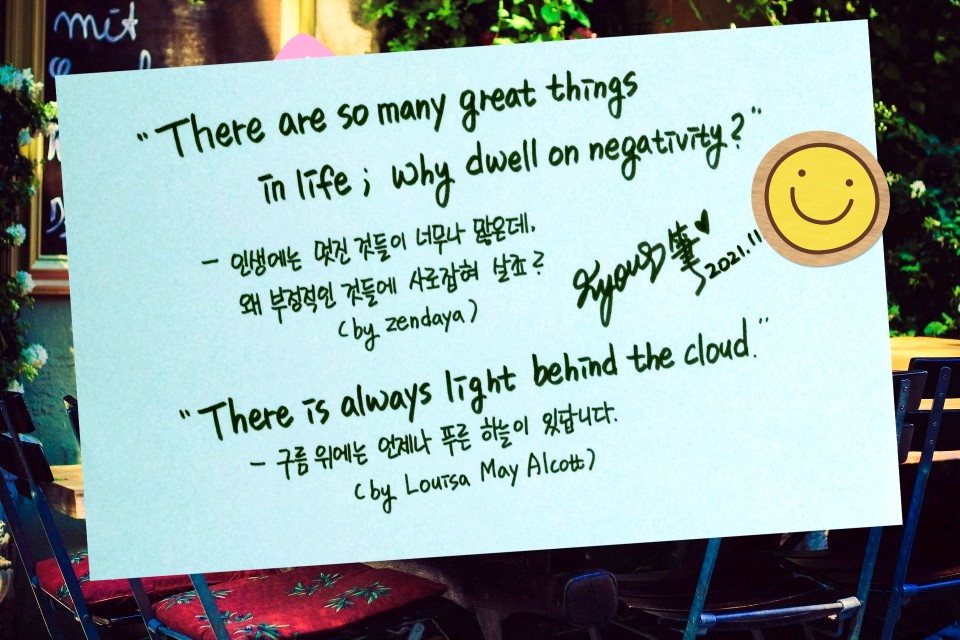 mit
"There are so many great things
in life ; why dwell on negativity?"
- 인생에는 멋진 것들이 너무나 많은데,
왜 부정적인 것들에 사로잡혀 살죠?
(by zendaya)
筆♥
2021.11
"There is always light behind the cloud."
- 구름 위에는 언제나 푸른 하늘이 있답니다.
(by Louisa May Alcott)